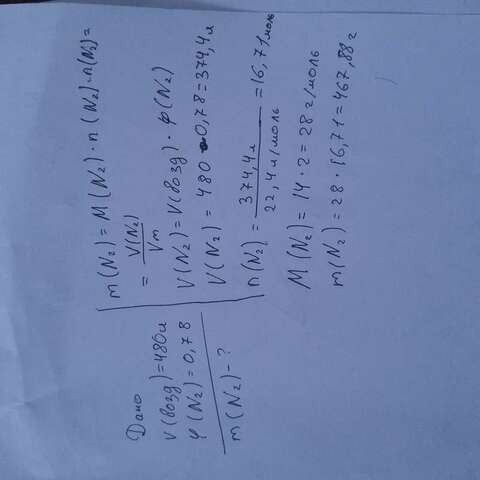 Дано
V(возд)=480л
φ(N₂)=0,78
m(N₂)-?
m(N₂)=M(N₂)·n(N₂)·n(N₂)=
= V(N₂)/Vm
V(N₂)=V(возд)·φ(N₂)
V(N₂)=480·0,78=374,4л
n(N₂)=374,4л/22,4л/моль=16,71моль
M(N₂)=14·2=28г/моль
m(N₂)=28·16,71=467,88г